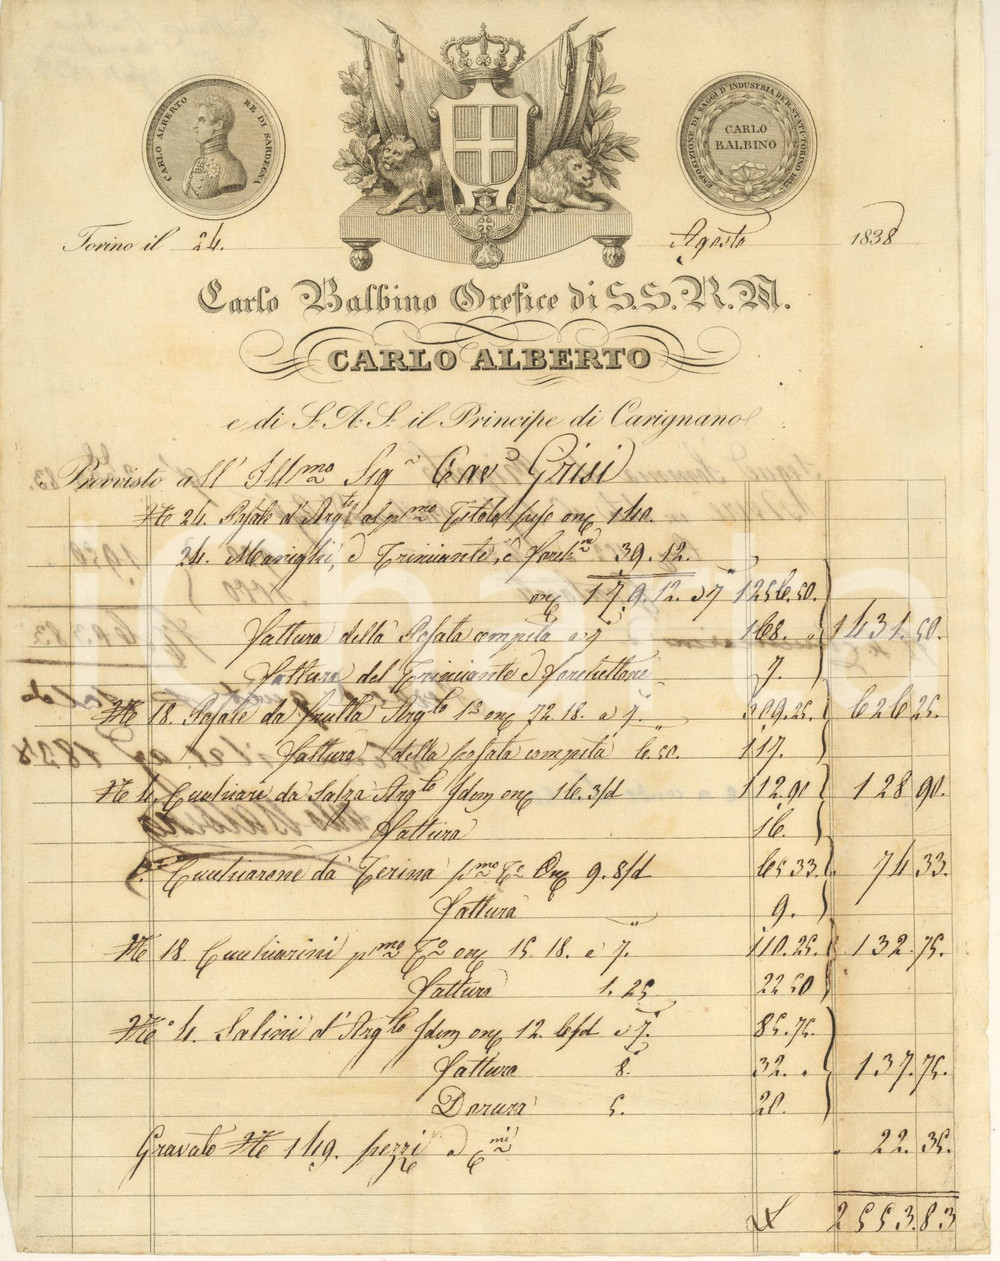 CARLO ALBERTO RE DI SARDEGNA
ESPOSIZIONE DI SAGGI D'INDUSTRIA DE R. STATI TORINO 1832
CARLO
BALBINO
Torino il 24. Agosto 1838
Carlo Balbino Orefice di S.S.R.M.
CARLO ALBERTO
e di S.A.S. il Principe di Carignano
Provvisto all' Ill.mo Sig.r Cav.e Grisi
N. 24. Posate d'Arg.to al p.mo Titolo peso onc 140.
24. Maniglie, e Trinciante, e Forch.ne 39.12.
onc 179.12. a 7 1256.50.
Fattura della Posata compita a 7 168. 1431.50.
Fattura del Trinciante e Forchettone 7.
N. 18. Posate da frutta Arg.to onc 72.18. a 7. 509.25. 626.25.
Fattura della posata compita 6.50. 117.
N. 4. Cuchiari da Salza Arg.to Idem onc 16.3/d 112.90 128.90.
Fattura 16.
Cuchiarone da Terina p.mo T.o Onc 9.8/d 65.33. 74.33.
Fattura 9.
N. 18. Cuchiarini p.mo T.o onc 15.18. a 7. 110.25. 132.75.
Fattura 1.25 22.50
N.o 4. Salini d'Arg.to Idem onc 12.6/d a 7. 85.75.
Fattura 8. 32. 137.75.
Dorura 5. 20.
Gravate N. 149. pezzi a C.mi 22.35.
£ 2553.83